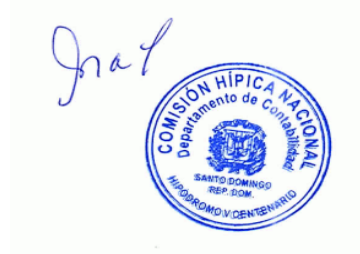 COMISIÓN HÍPICA NACIONAL
Departamento de Contabilidad
SANTO DOMINGO
REP. DOM.
HIPODROMO V CENTENARIO